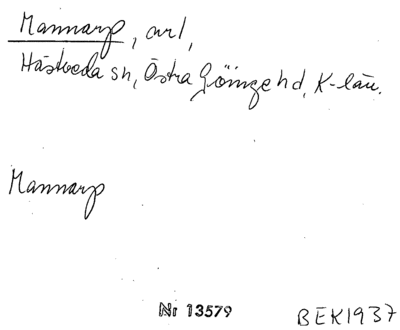 Mannarp, avl,
Hästveda sn, Östra Göinge hd, K-län.
Mannarp
Nr 13579 BEK1937